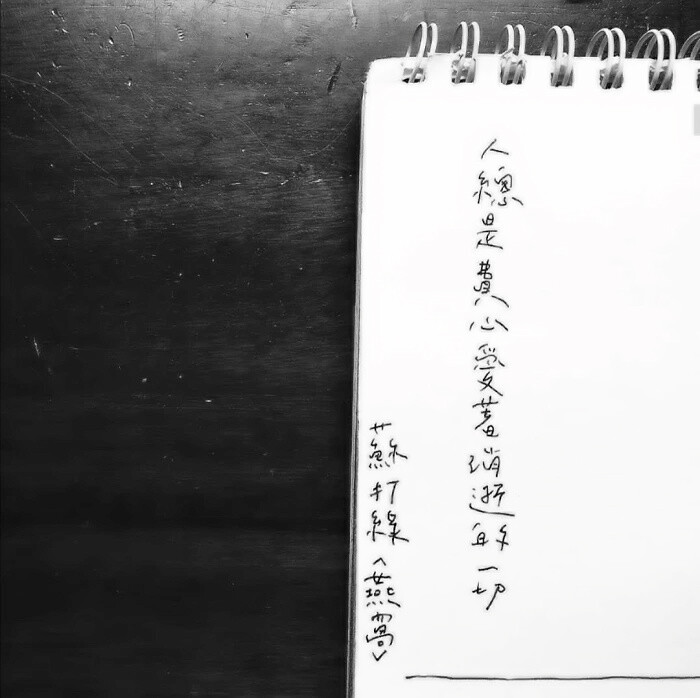 人總是費心愛著消逝的一切
蘇打綠〈燕窩〉